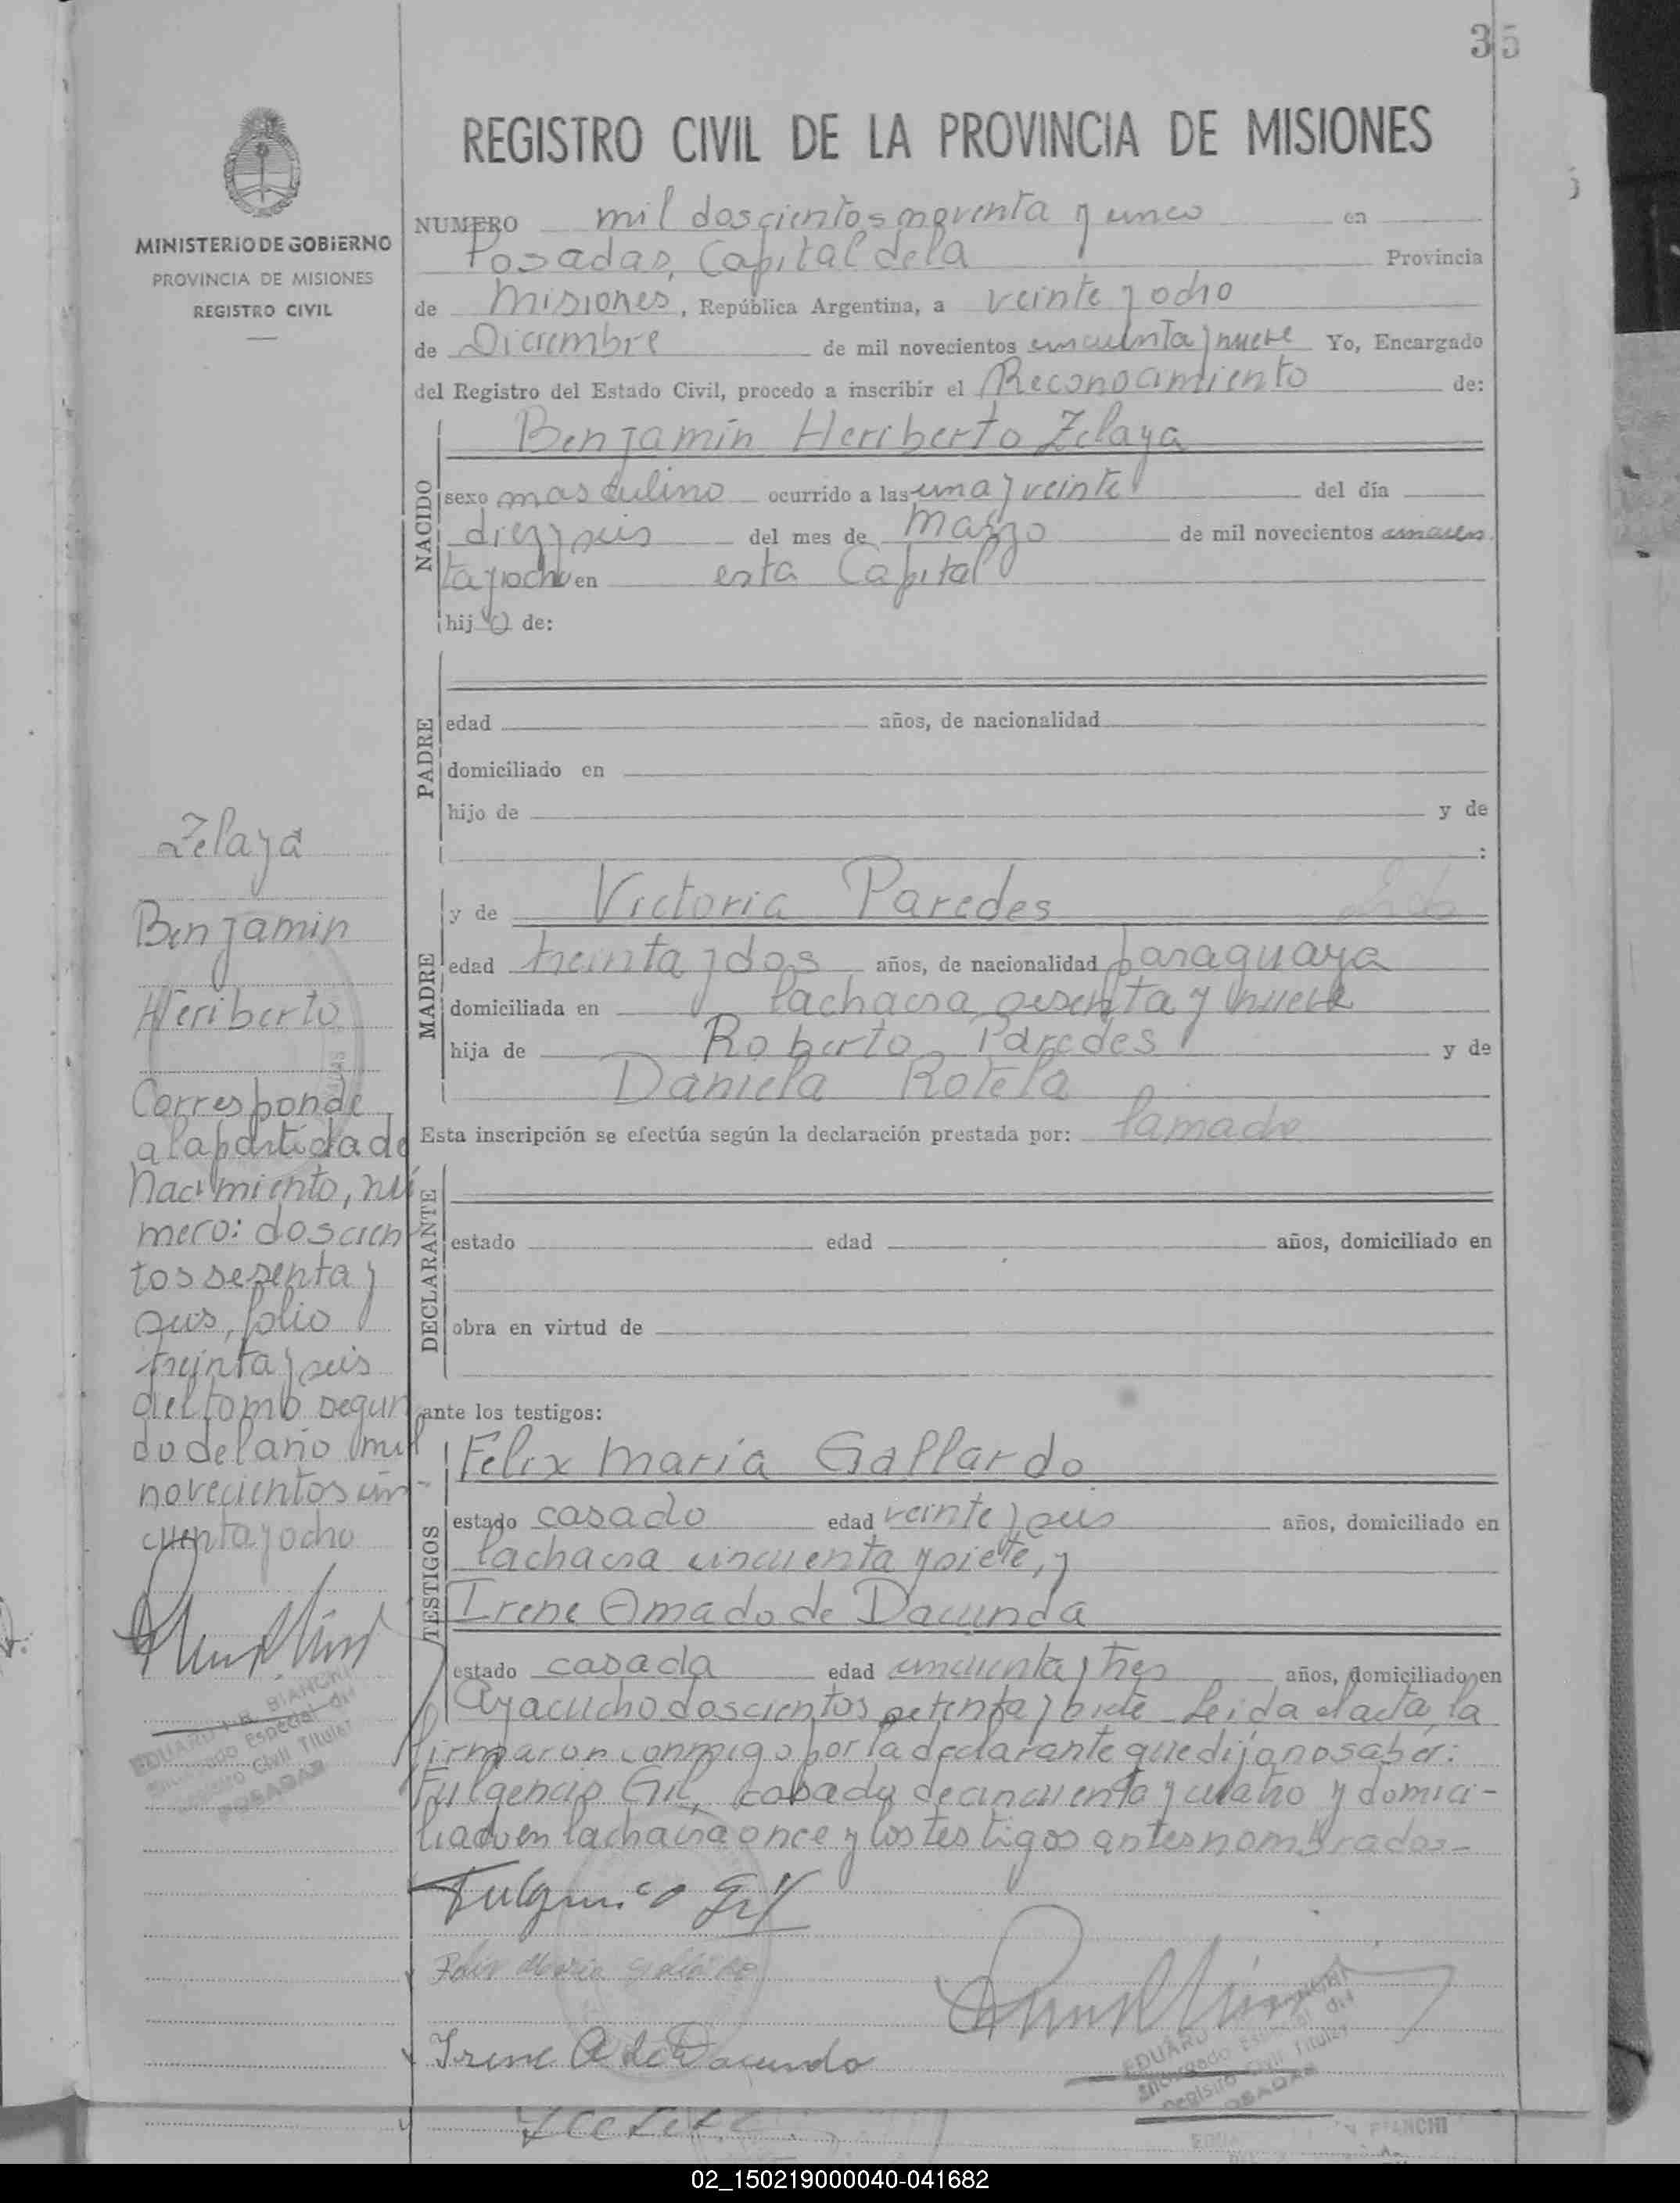 35
REGISTRO CIVIL DE LA PROVINCIA DE MISIONES
MINISTERIO DE GOBIERNO
PROVINCIA DE MISIONES
REGISTRO CIVIL
NUMERO mil doscientos noventa y unco en
Posadas, Capital de la Provincia
de Misiones, República Argentina, a veinte y ocho
de Diciembre de mil novecientos cincuenta y nueve Yo, Encargado
del Registro del Estado Civil, procedo a inscribir el Reconocimiento de:
NACIDO
Benjamín Heriberto Zelaya
sexo masculino ocurrido a las una y veinte del día
diez y seis del mes de Marzo de mil novecientos cincuen
ta y ocho en esta Capital
hijo de:
PADRE
edad años, de nacionalidad
domiciliado en
hijo de y de
:
MADRE
y de Victoria Paredes
edad treinta y dos años, de nacionalidad paraguaya
domiciliada en la chacra sesenta y nueve
hija de Roberto Paredes y de
Daniela Rotela
Esta inscripción se efectúa según la declaración prestada por: la madre
DECLARANTE
estado edad años, domiciliado en
obra en virtud de
ante los testigos:
TESTIGOS
Felix Maria Gallardo
estado casado edad veinte y seis años, domiciliado en
la chacra cincuenta y siete, y
Irene Amado de Dacunda
estado casada edad cincuenta y tres años, domiciliado en
Ayacucho doscientos setenta y siete Leida el acta, la
firmaron conmigo por la declarante que dijo no saber:
Fulgencio Gil, casado de cincuenta y cuatro y domici-
liado en la chacra once y los testigos antes nombrados-
Fulgencio Gil
Felix Maria Gallardo
Irene A de Dacunda
Zelaya
Benjamin
Heriberto
Corresponde
a la partida de
nacimiento, nú
mero: doscien
tos sesenta y
seis, folio
treinta y seis
del tomo segun
do del año mil
novecientos cin-
cuenta y ocho
EDUARDO R. BIANCHI
Encargado Especial del
Registro Civil Titular
POSADAS
EDUARDO BIANCHI
Encargado Especial del
Registro Civil Titular
POSADAS
BIANCHI
02_150219000040-041682